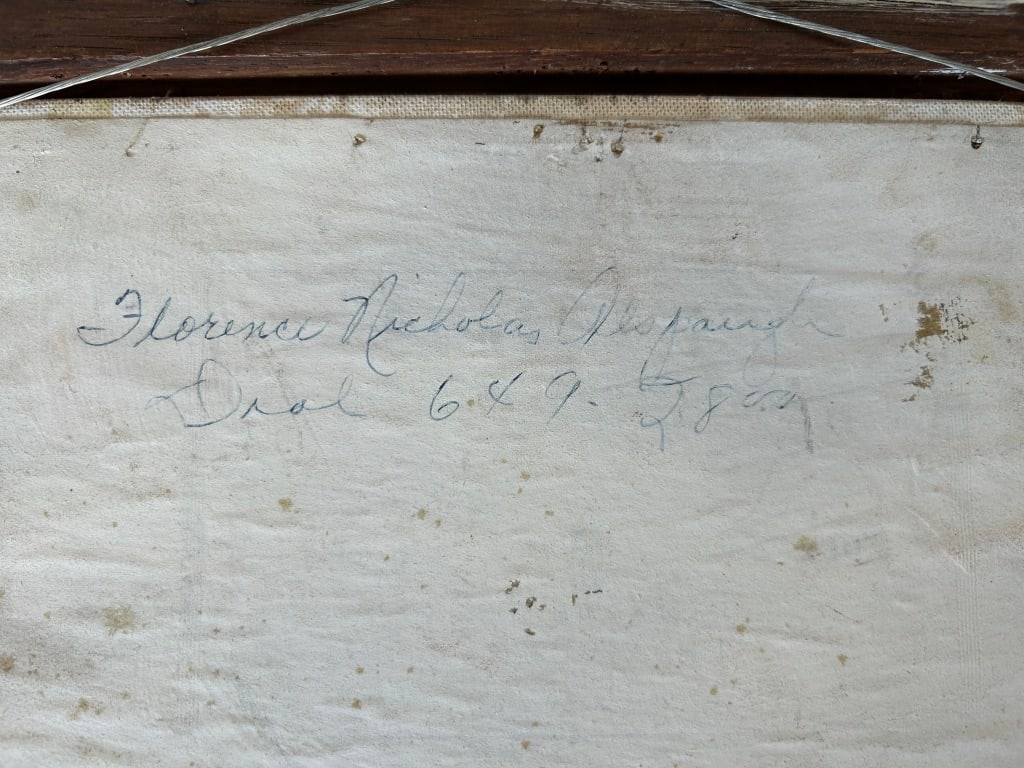 Florence Nicholas Alspaugh
Dial 649-